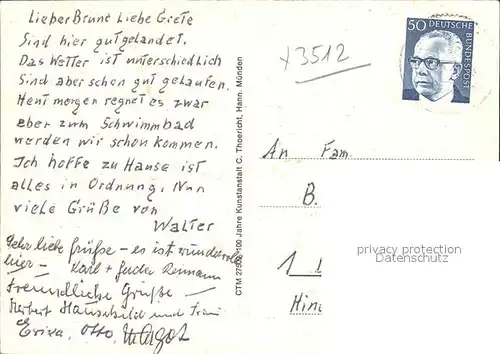 Lieber Bruno Liebe Grete
Sind hier gut gelandet.
Das Wetter ist unterschiedlich
Sind aber schon gut gelaufen.
Heut morgen regnet es zwar
aber zum Schwimmbad
werden wir schon kommen.
Ich hoffe zu Hause ist
alles in Ordnung. Nun
viele Grüße von
Walter
Sehr liebe Grüße – es ist wundervoll
hier –
Karl +
Freundliche Grüße –
Herbert Hauschild und Frau
Erika, Otto Margot
CTM 100 Jahre Kunstanstalt C. Thoericht, Hann. Münden
x3512
50 DEUTSCHE
BUNDESPOST
An Fam.
B.
privacy protection
Datenschutz
1 L
Hin